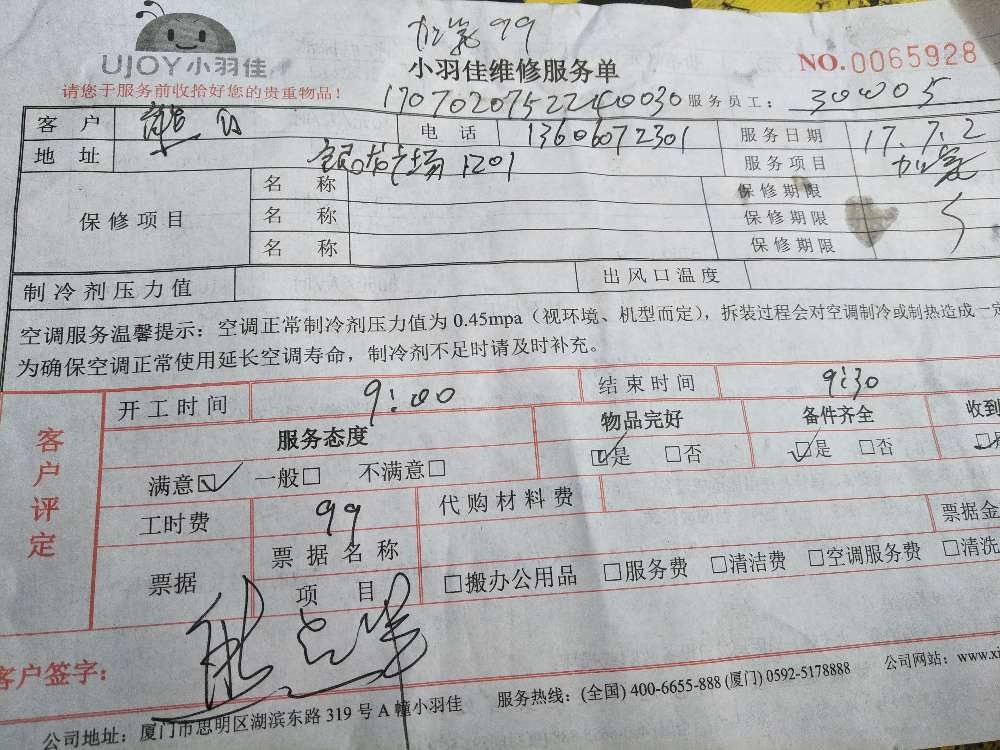 加氨99
UJOY小羽佳
小羽佳维修服务单
NO.0065928
请您于服务前收拾好您的贵重物品!
服务员工: 30005
客户 熊
电话 13606072301
服务日期 17.7.2
地址 银龙广场1201
服务项目
保修项目
名称
保修期限
名称
保修期限
名称
保修期限
制冷剂压力值
出风口温度
空调服务温馨提示: 空调正常制冷剂压力值为 0.45mpa (视环境、机型而定), 拆装过程会对空调制冷或制热造成一定
为确保空调正常使用延长空调寿命, 制冷剂不足时请及时补充。
客户评定
开工时间 9:00
结束时间 9:30
服务态度
物品完好
备件齐全
收到
满意☑ 一般□ 不满意□
☑是 □否
☑是 □否
工时费 99
代购材料费
票据金
票据
票据名称
项目
□搬办公用品 □服务费 □清洁费 □空调服务费 □清洗
客户签字:
公司地址: 厦门市思明区湖滨东路 319 号 A 幢小羽佳
服务热线: (全国) 400-6655-888 (厦门) 0592-5178888
公司网站: www.xi